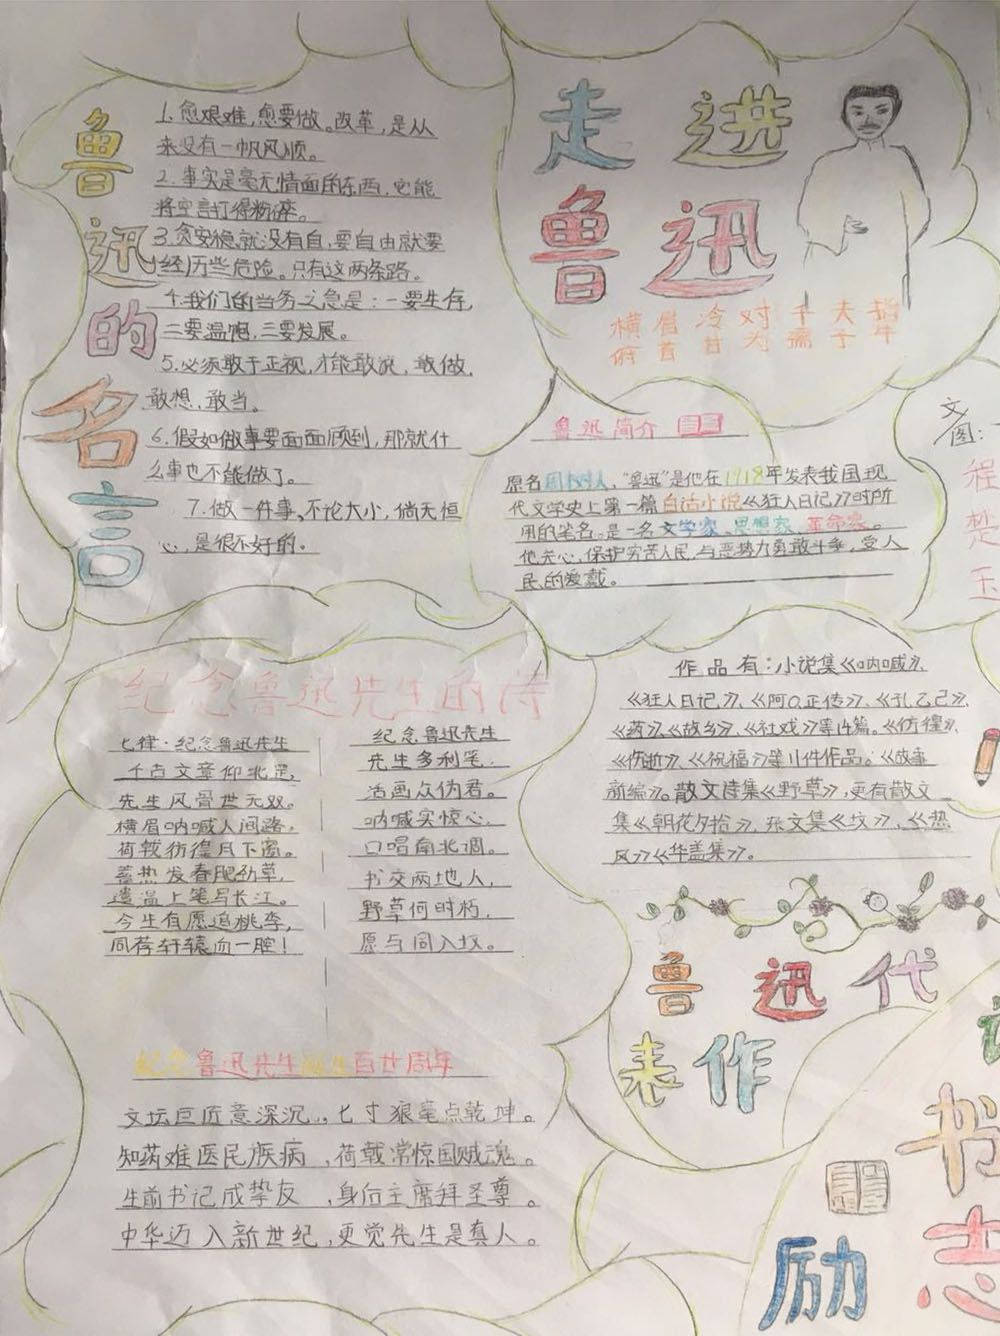 鲁迅的名言
1.愈艰难,愈要做。改革,是从
来没有一帆风顺。
2.事实是毫无情面的东西,它能
将空言打得粉碎。
3.贪安稳就没有自,要自由就要
经历些危险。只有这两条路。
4.我们的当务之急是:一要生存,
二要温饱,三要发展。
5.必须敢于正视,才能敢说,敢做,
敢想,敢当。
6.假如做事要面面顾到,那就什
么事也不能做了。
7.做一件事,不论大小,倘无恒
心,是很不好的。
走进
鲁迅
横眉冷对千夫指
俯首甘为孺子牛
鲁迅简介
原名周树人,“鲁迅”是他在1918年发表我国现
代文学史上第一篇白话小说《狂人日记》时所
用的笔名。是一名文学家、思想家、革命家。
他关心,保护穷苦人民,与恶势力勇敢斗争,受人
民的爱戴。
文
图:
程
楚
玉
纪念鲁迅先生的诗
七律·纪念鲁迅先生
千古文章仰北辰,
先生风骨世无双。
横眉呐喊人间路,
荷戟彷徨月下窗。
蓄热发春肥劲草,
遗温上笔写长江。
今生有愿追桃李,
同荐轩辕血一腔!
纪念鲁迅先生
先生多利笔,
活画众伪君。
呐喊实惊心,
口唱南北调。
书交两地人,
野草何时朽,
愿与同入坟。
作品有:小说集《呐喊》、
《狂人日记》、《阿Q正传》、《孔乙己》、
《药》《故乡》、《社戏》等14篇。《彷徨》、
《伤逝》、《祝福》等11件作品。《故事
新编》。散文诗集《野草》,更有散文
集《朝花夕拾》,杂文集《坟》,《热
风》《华盖集》。
鲁迅代
表作
纪念鲁迅先生诞生百廿周年
文坛巨匠意深沉,七寸狼毫点乾坤。
知药难医民族病,荷戟常惊国贼魂。
生前书记成挚友,身后主席拜圣尊。
中华迈入新世纪,更觉先生是真人。
书
励志